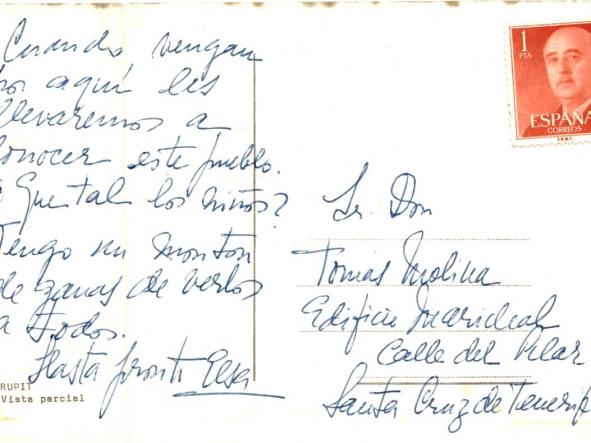 Cuando vengan
por aquí les
llevaremos a
conocer este pueblo.
Que tal los niños?
Tengo un monton
de ganas de verlos
a todos.
Hasta pronto Elsa
RUPIT
Vista parcial
1
PTA
ESPAÑA
CORREOS
Sr. Don
Tomás Molina
Edificio Marichal
Calle del Pilar
Santa Cruz de Tenerife